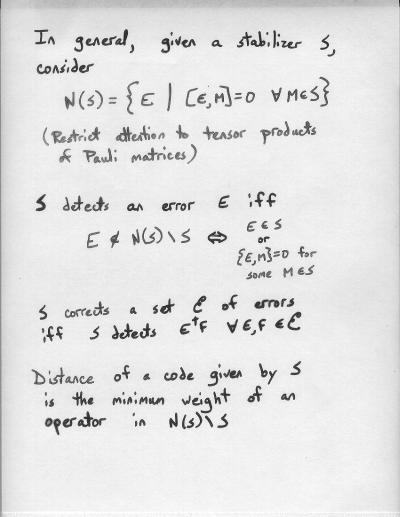 In general, given a stabilizer S,
consider
N(S) = { E | [E,M]=0 ∀ M∈S}
(Restrict attention to tensor products
of Pauli matrices)
S detects an error E iff
E ∉ N(S)\S ⇔ E∈S
or
{E,M}=0 for
some M∈S
S corrects a set ℰ of errors
iff S detects E†F ∀ E,F ∈ ℰ
Distance of a code given by S
is the minimum weight of an
operator in N(S)\S